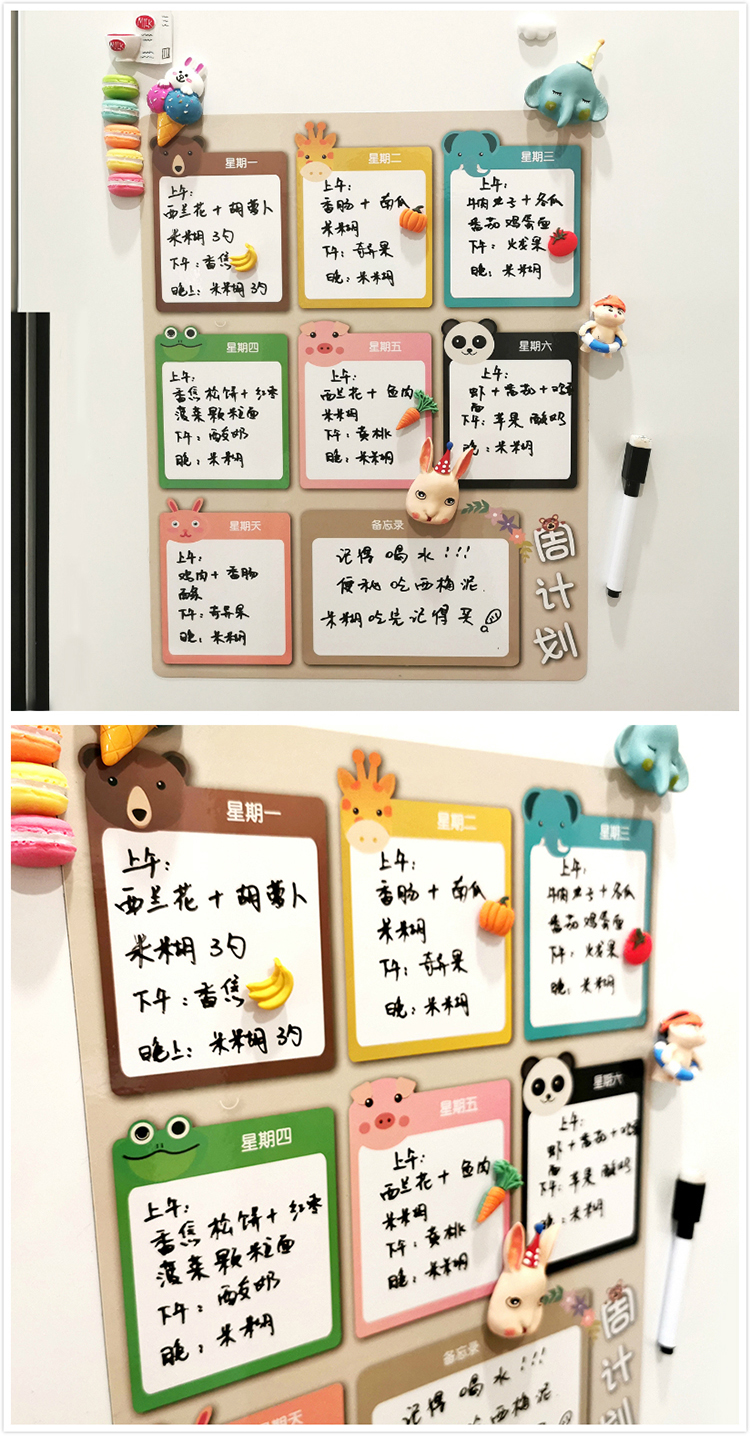 星期一
上午：
西兰花 + 胡萝卜
米米糊 3勺
下午：香蕉
晚上：米米糊 3勺
星期二
上午：
香肠 + 南瓜
米米糊
下午：奇异果
晚：米米糊
星期三
上午：
牛肉丸子 + 冬瓜
番茄鸡蛋面
下午：火龙果
晚：米糊
星期四
上午：
香蕉松饼 + 红枣
菠菜颗粒面
下午：酸奶
晚：米糊
星期五
上午：
西兰花 + 鱼肉
米米糊
下午：黄桃
晚：米米糊
星期六
上午：
虾 + 番茄 +
面
下午：苹果 酸奶
晚：米糊
星期天
上午：
鸡肉 + 香肠
面条
下午：奇异果
晚：米糊
备忘录
记得喝水!!!
便秘吃西梅泥.
米糊吃完记得买
周计划
星期一
上午：
西兰花 + 胡萝卜
米米糊 3勺
下午：香蕉
晚上：米米糊 3勺
星期二
上午：
香肠 + 南瓜
米米糊
下午：奇异果
晚：米米糊
星期三
上午：
牛肉丸子 + 冬瓜
番茄鸡蛋面
下午：火龙果
晚：米糊
星期四
上午：
香蕉松饼 + 红枣
菠菜颗粒面
下午：酸奶
晚：米糊
星期五
上午：
西兰花 + 鱼肉
米米糊
下午：黄桃
晚：米米糊
星期六
上午：
虾 + 番茄 +
面
下午：苹果 酸奶
晚：米糊
星期天
备忘录
记得喝水!!!
吃西梅泥.
周计划